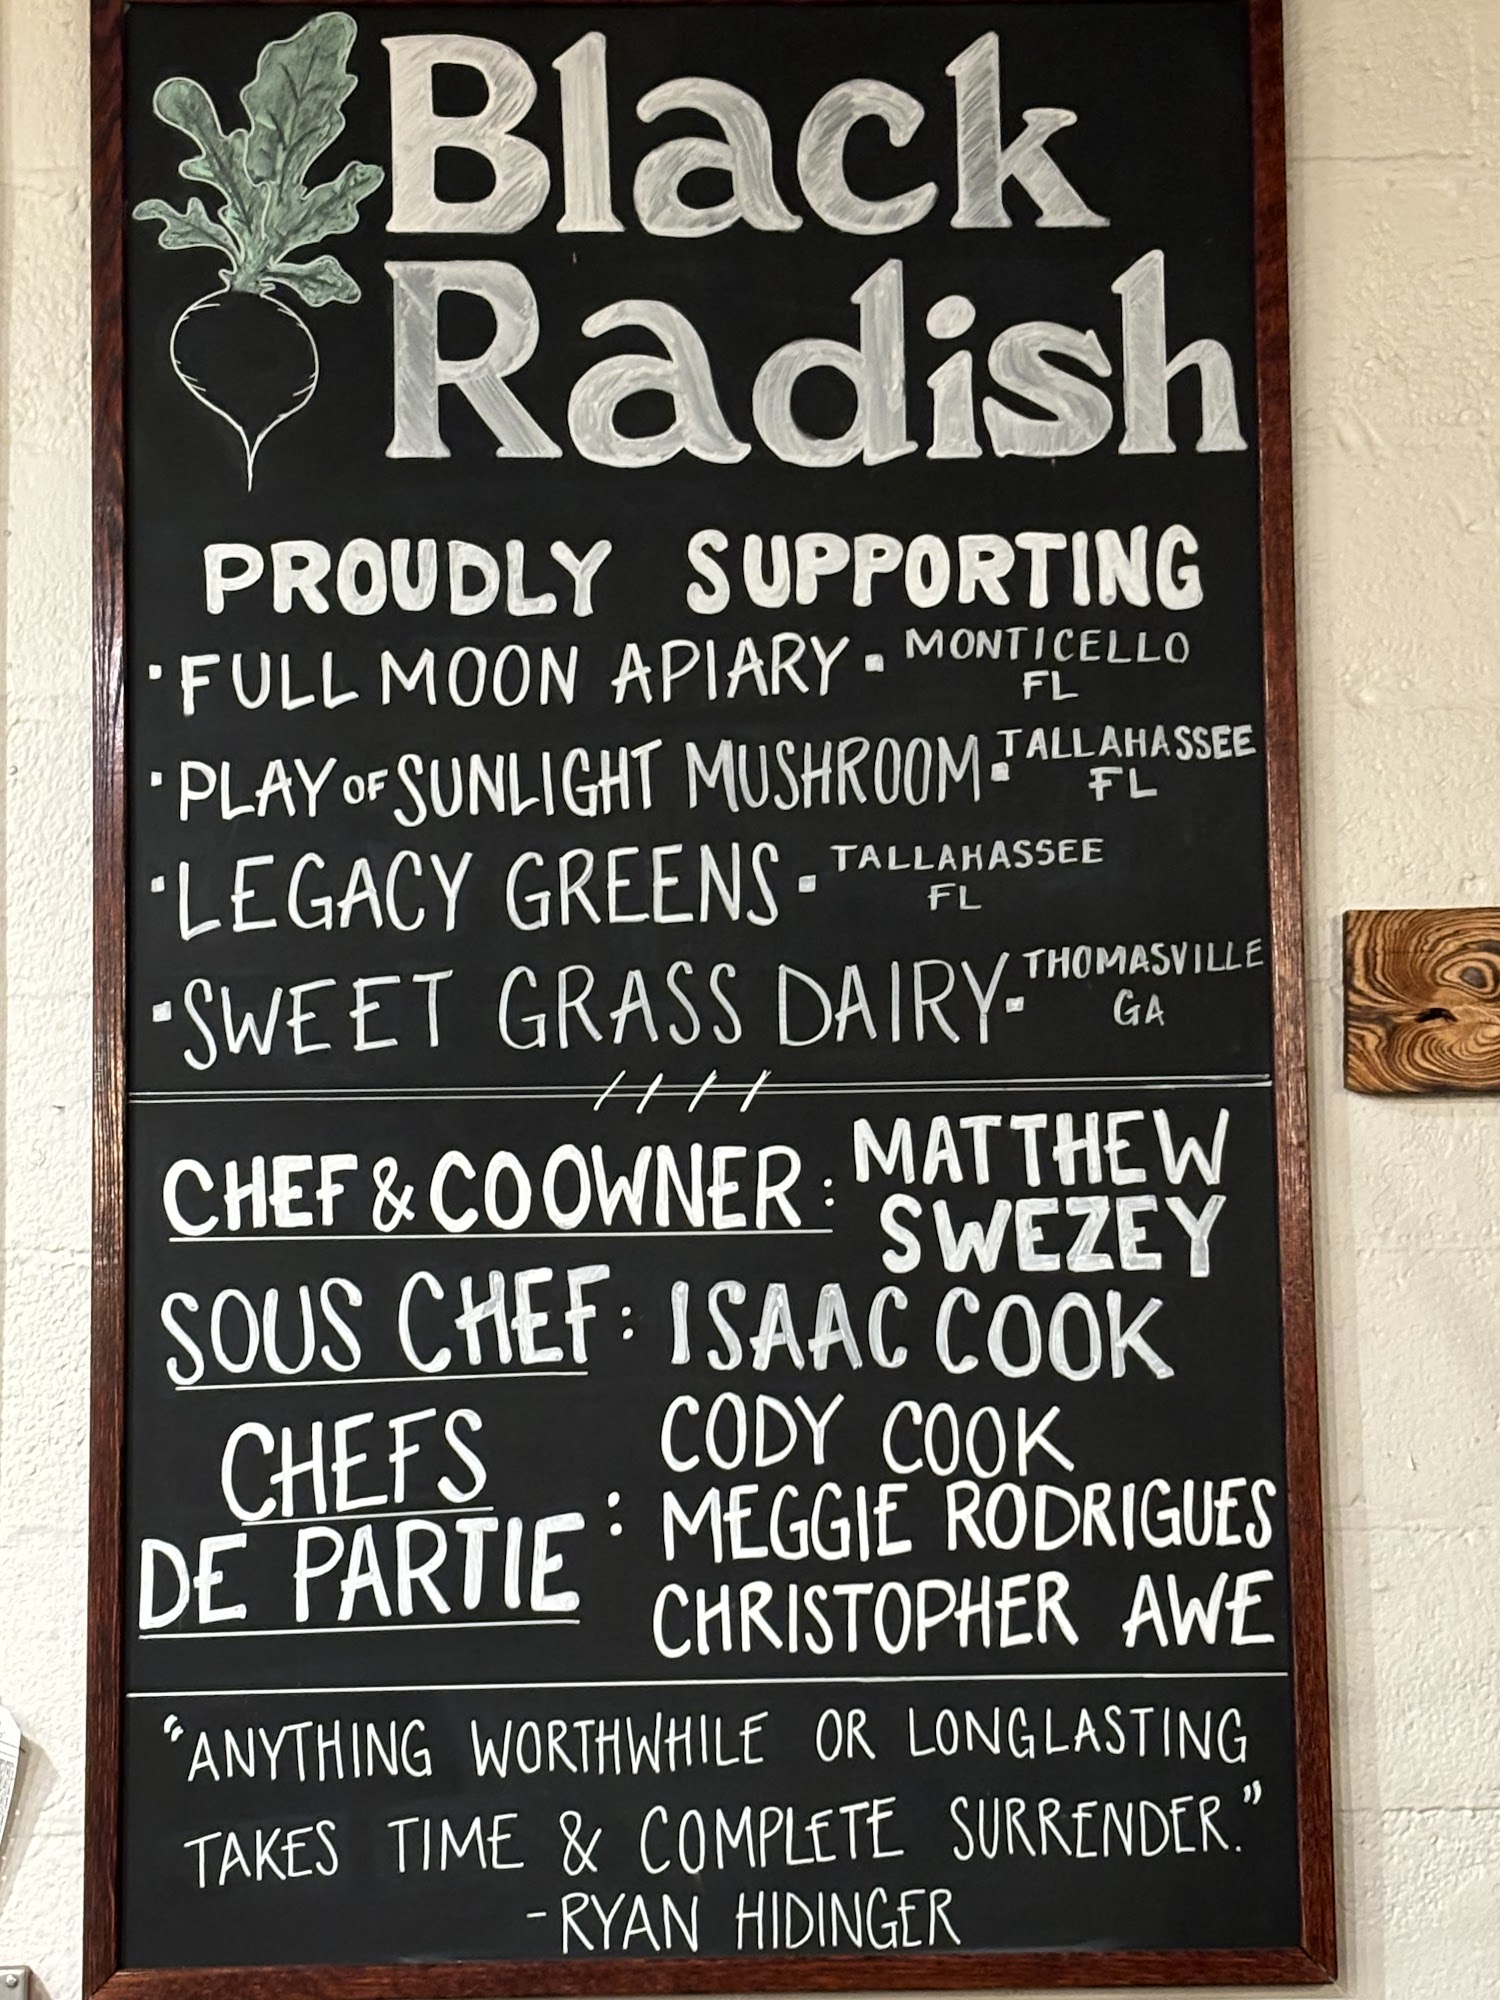 Black
Radish
PROUDLY SUPPORTING
▪ FULL MOON APIARY ▪ MONTICELLO
FL
▪ PLAY OF SUNLIGHT MUSHROOM ▪ TALLAHASSEE
FL
▪ LEGACY GREENS ▪ TALLAHASSEE
FL
▪ SWEET GRASS DAIRY ▪ THOMASVILLE
GA
CHEF & COOWNER: MATTHEW
SWEZEY
SOUS CHEF: ISAAC COOK
CHEFS
DE PARTIE :
CODY COOK
MEGGIE RODRIGUES
CHRISTOPHER AWE
"ANYTHING WORTHWHILE OR LONGLASTING
TAKES TIME & COMPLETE SURRENDER."
- RYAN HIDINGER